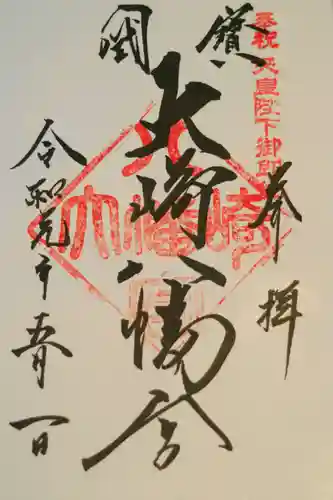 奉祝天皇陛下御即
奉拝
國寳
大崎八幡宮
令和元年五月一日